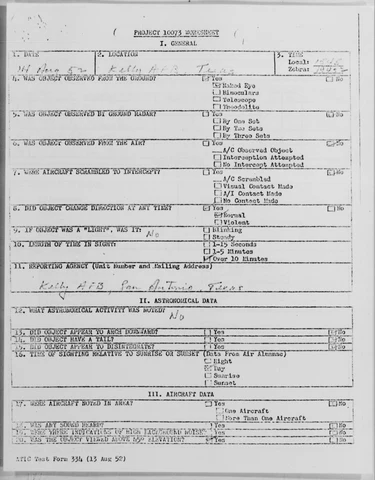 PROJECT 10073 WORKSHEET
I. GENERAL
1. DATE 2. LOCATION 3. TIME
14 Aug 52 Kelly AFB Texas Local:
Zebra:
4. WAS OBJECT OBSERVED FROM THE GROUND? Yes No
Naked Eye
Binoculars
Telescope
Theodolite
5. WAS OBJECT OBSERVED BY GROUND RADAR? Yes No
By One Set
By Two Sets
By Three Sets
6. WAS OBJECT OBSERVED FROM THE AIR? Yes No
A/C Observed Object
Interception Attempted
No Intercept Attempted
7. WERE AIRCRAFT SCRAMBLED TO INTERCEPT? Yes No
A/C Scrambled
Visual Contact Made
A/I Contact Made
No Contact Made
8. DID OBJECT CHANGE DIRECTION AT ANY TIME? Yes No
Normal
Violent
9. IF OBJECT WAS A "LIGHT", WAS IT: No Blinking
Steady
10. LENGTH OF TIME IN SIGHT: 1-15 Seconds
1-5 Minutes
Over 10 Minutes
11. REPORTING AGENCY (Unit Number and Mailing Address)
Kelly AFB, San Antonio, Texas
II. ASTRONOMICAL DATA
12. WHAT ASTRONOMICAL ACTIVITY WAS NOTED?
No
13. DID OBJECT APPEAR TO ARCH DOWNWARD? Yes No
14. DID OBJECT HAVE A TAIL? Yes No
15. DID OBJECT APPEAR TO DISINTEGRATE? Yes No
16. TIME OF SIGHTING RELATIVE TO SUNRISE OR SUNSET (Data From Air Almanac)
Night
Day
Sunrise
Sunset
III. AIRCRAFT DATA
17. WERE AIRCRAFT NOTED IN AREA? Yes No
One Aircraft
More Than One Aircraft
18. WAS ANY SOUND HEARD? Yes No
19. WERE THERE INDICATIONS OF HIGH BACKGROUND NOISE? Yes No
20. WAS THE OBJECT VIEWED ABOVE 45° ELEVATION? Yes No
ATIC Test Form 334 (13 Aug 52)